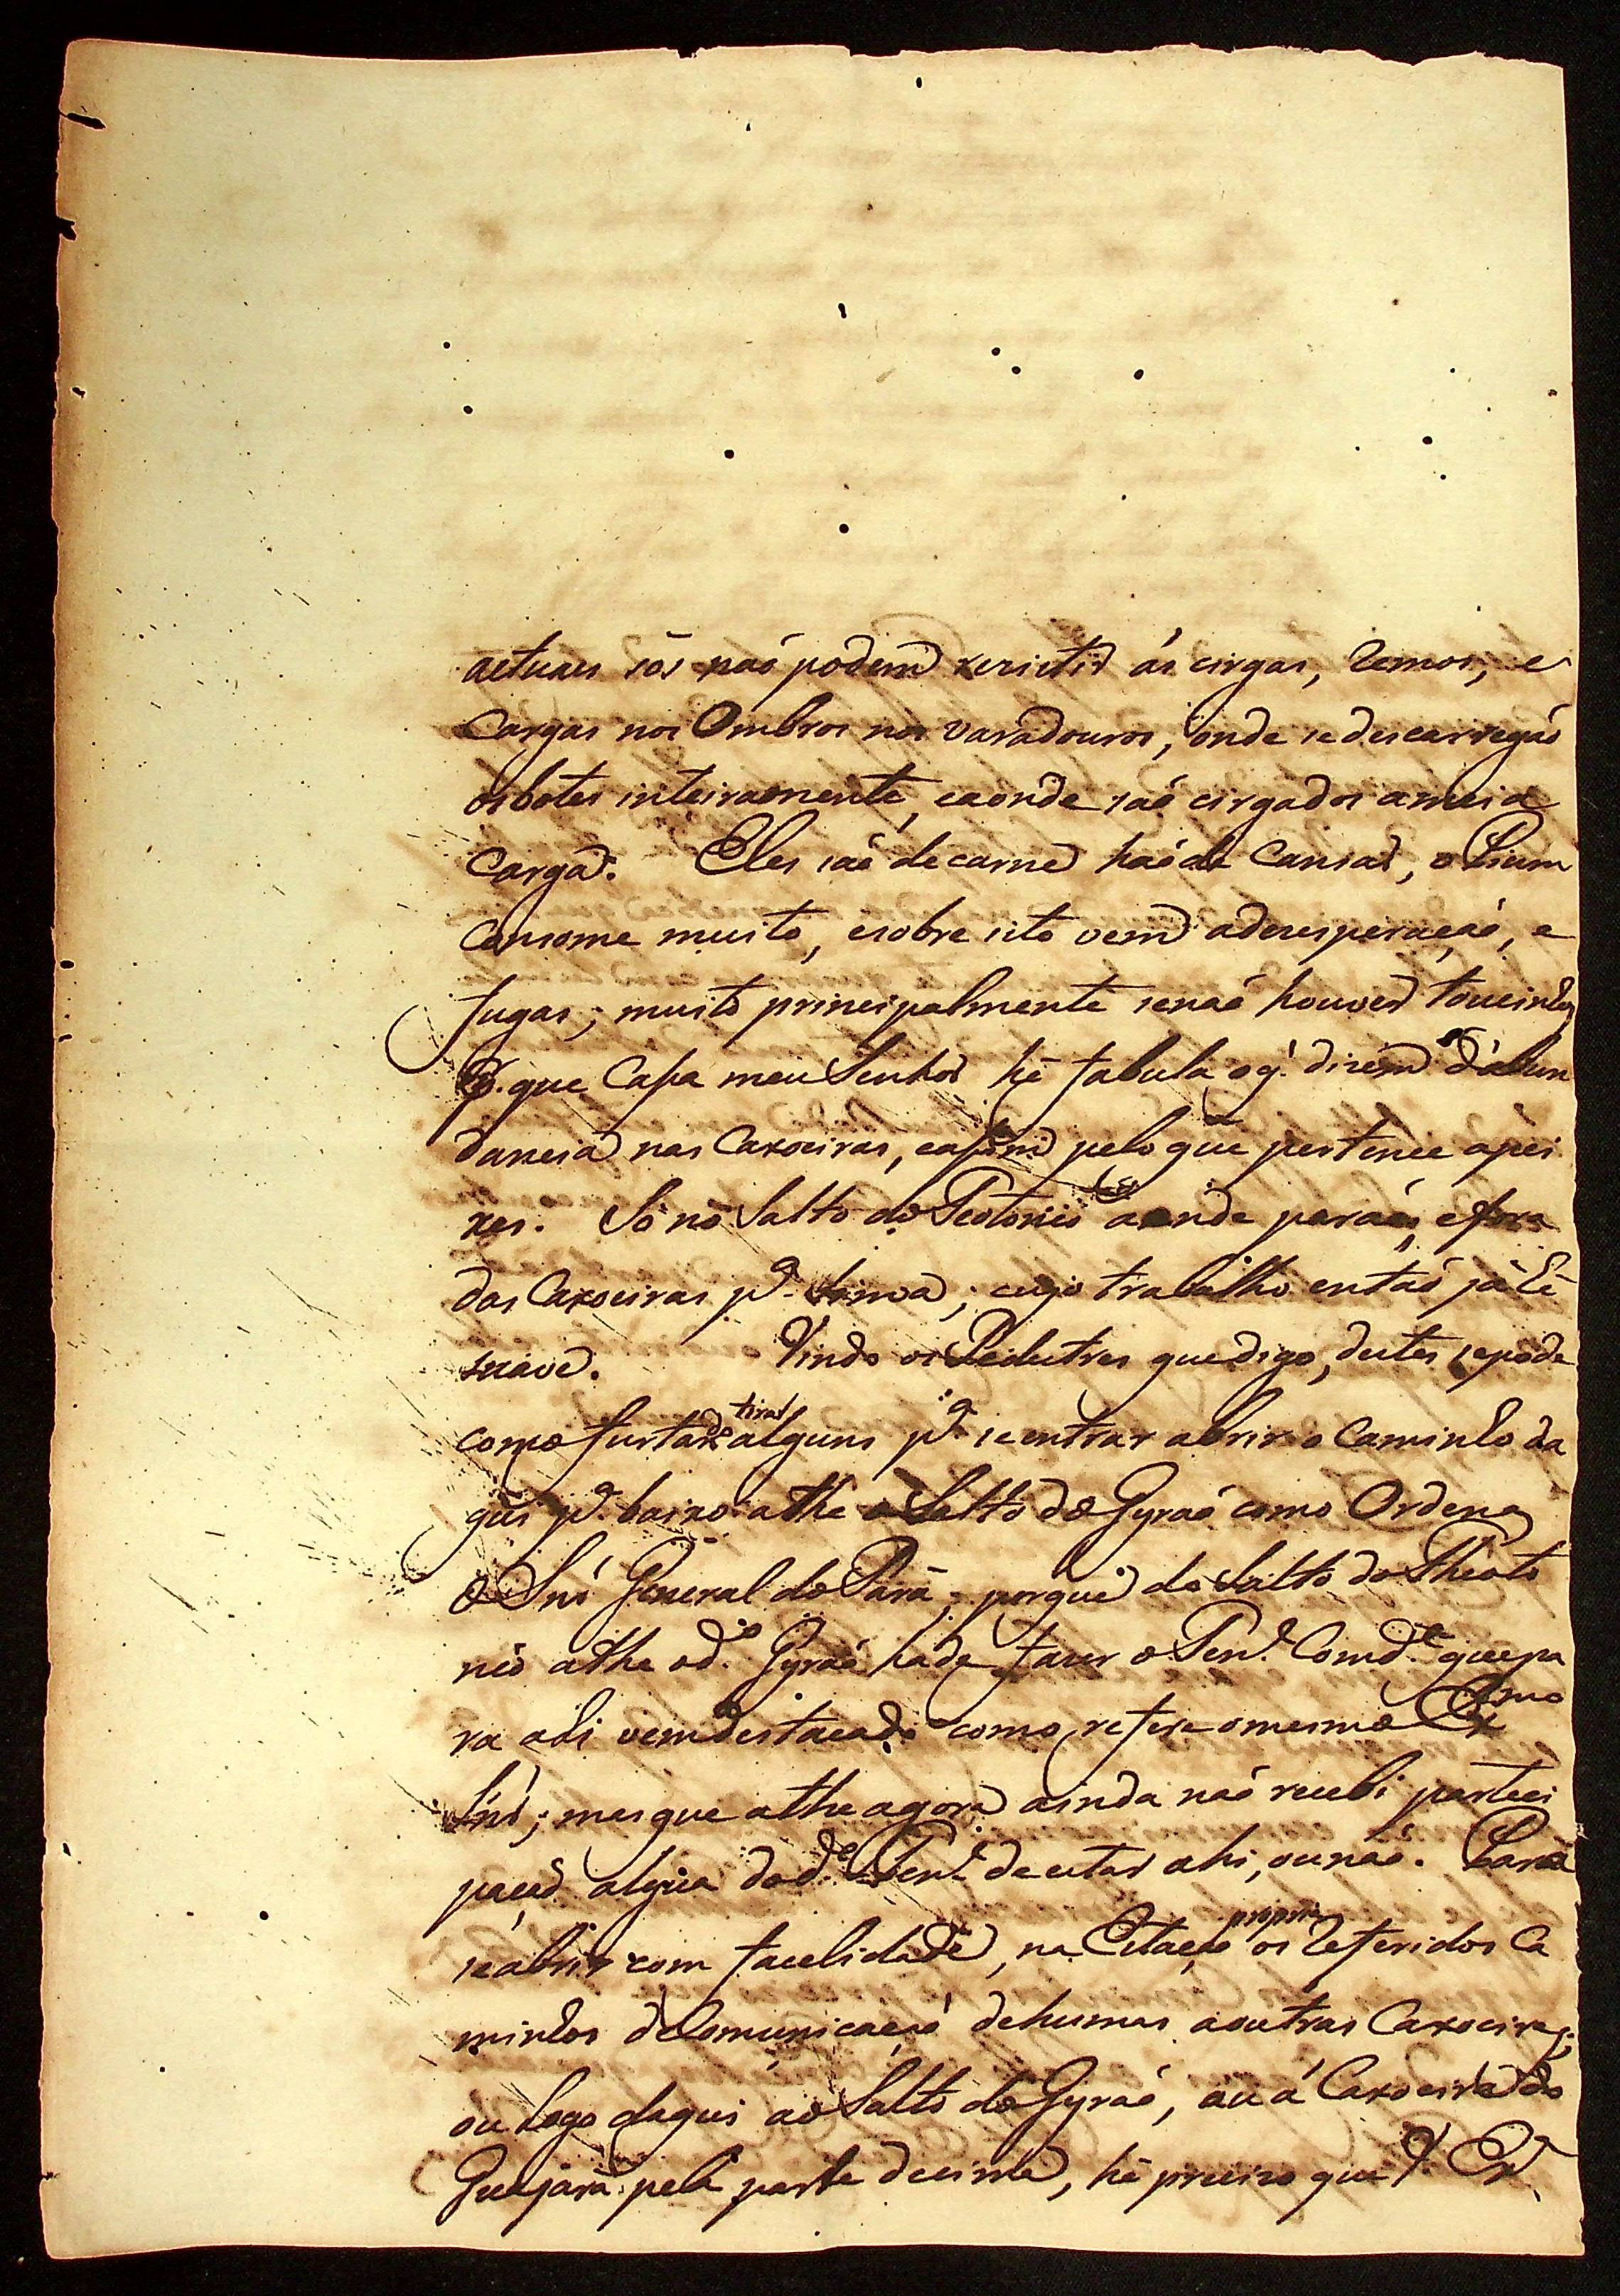 actuaes sós naõ podem rezistir ás cirgas, remos, e
Cargas nos Ombros nos varadouros, onde se descarregaõ
os botes inteiramente, e aonde saõ cirgados a meia
Carga. Eles saõ de carne haõ de Cansar, o Sum
consome muito, e sobre isto vem a desesperaçaõ, e
fugas; muito principalmente se naõ houver toucinho,
que Capa meu Senhor hé fabula o q̃ dizem d'abun
dancia nas Caxoeiras, e asim pelo que pertence a pei
xes. Só no Salto do Teotonio aonde paraõ, e fora
das Caxoeiras p.ª Sima; cujo trabalho entaõ já hé
suave. Vindo os Pedestres que digo, destes se pode
como furtar tirar alguns p.ª se entrar abrir o Caminho da
qui p.ª baixo athe o Salto do Gyraõ como Ordena
o Snr̃ General do Pará, porque do Salto do Theoto
nio athe o d.º Gyraõ hade fazer o Ten.e Comd.e que pa
ra ahi vem destacado como refere o mesmo Ex.mo
Snr̃; mas que athe agora ainda naõ recebi partici
paçaõ algũa do d.º Ten.e de estar ahi, ou naõ. Para
se abrir com facelidade, na Estaçaõ propria os referidos Ca
minhos de Comunicaçaõ de humas a outras Caxoeiras;
ou logo daqui ao Salto do Gyraõ, ou á Caxoeira do
Guajará pela parte de cima, hé precizo que V. Ex.ª